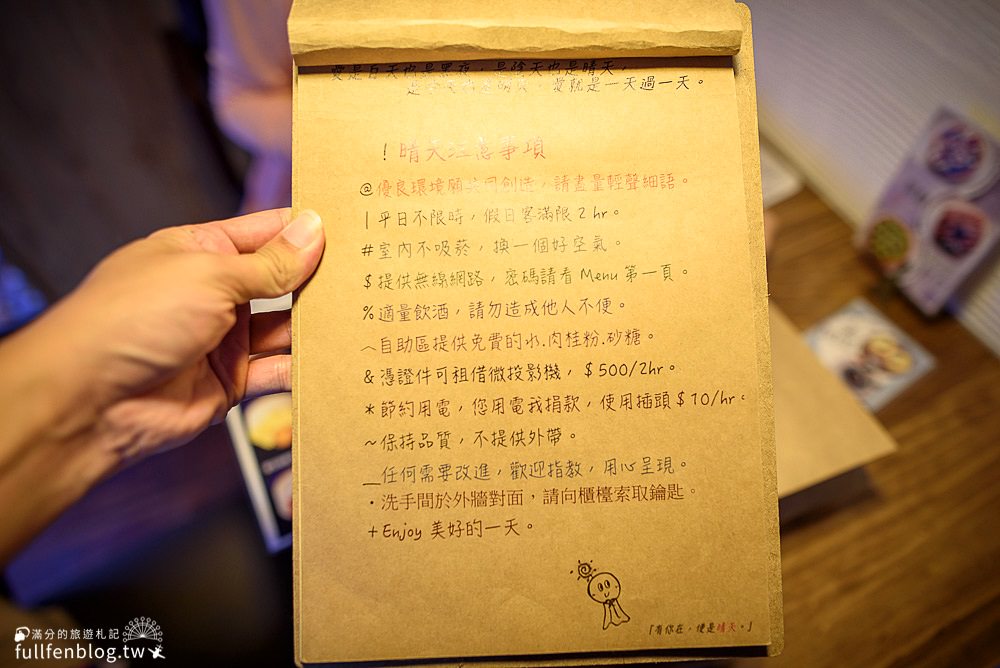 愛是白天也是黑夜，是陰天也是晴天，
愛就是一天過一天。
！晴天注意事項
@優良環境願共同創造，請盡量輕聲細語。
|平日不限時，假日客滿限2hr。
#室內不吸菸，換一個好空氣。
$提供無線網路，密碼請看Menu第一頁。
%適量飲酒，請勿造成他人不便。
︿自助區提供免費的水.肉桂粉.砂糖。
&憑證件可租借微投影機，$500/2hr。
*節約用電，您用電我捐款，使用插頭$10/hr。
~保持品質，不提供外帶。
_任何需要改進，歡迎指教，用心呈現。
・洗手間於外牆對面，請向櫃檯索取鑰匙。
+Enjoy 美好的一天。
「有你在，便是晴天。」
滿分的旅遊札記
fullfenblog.tw